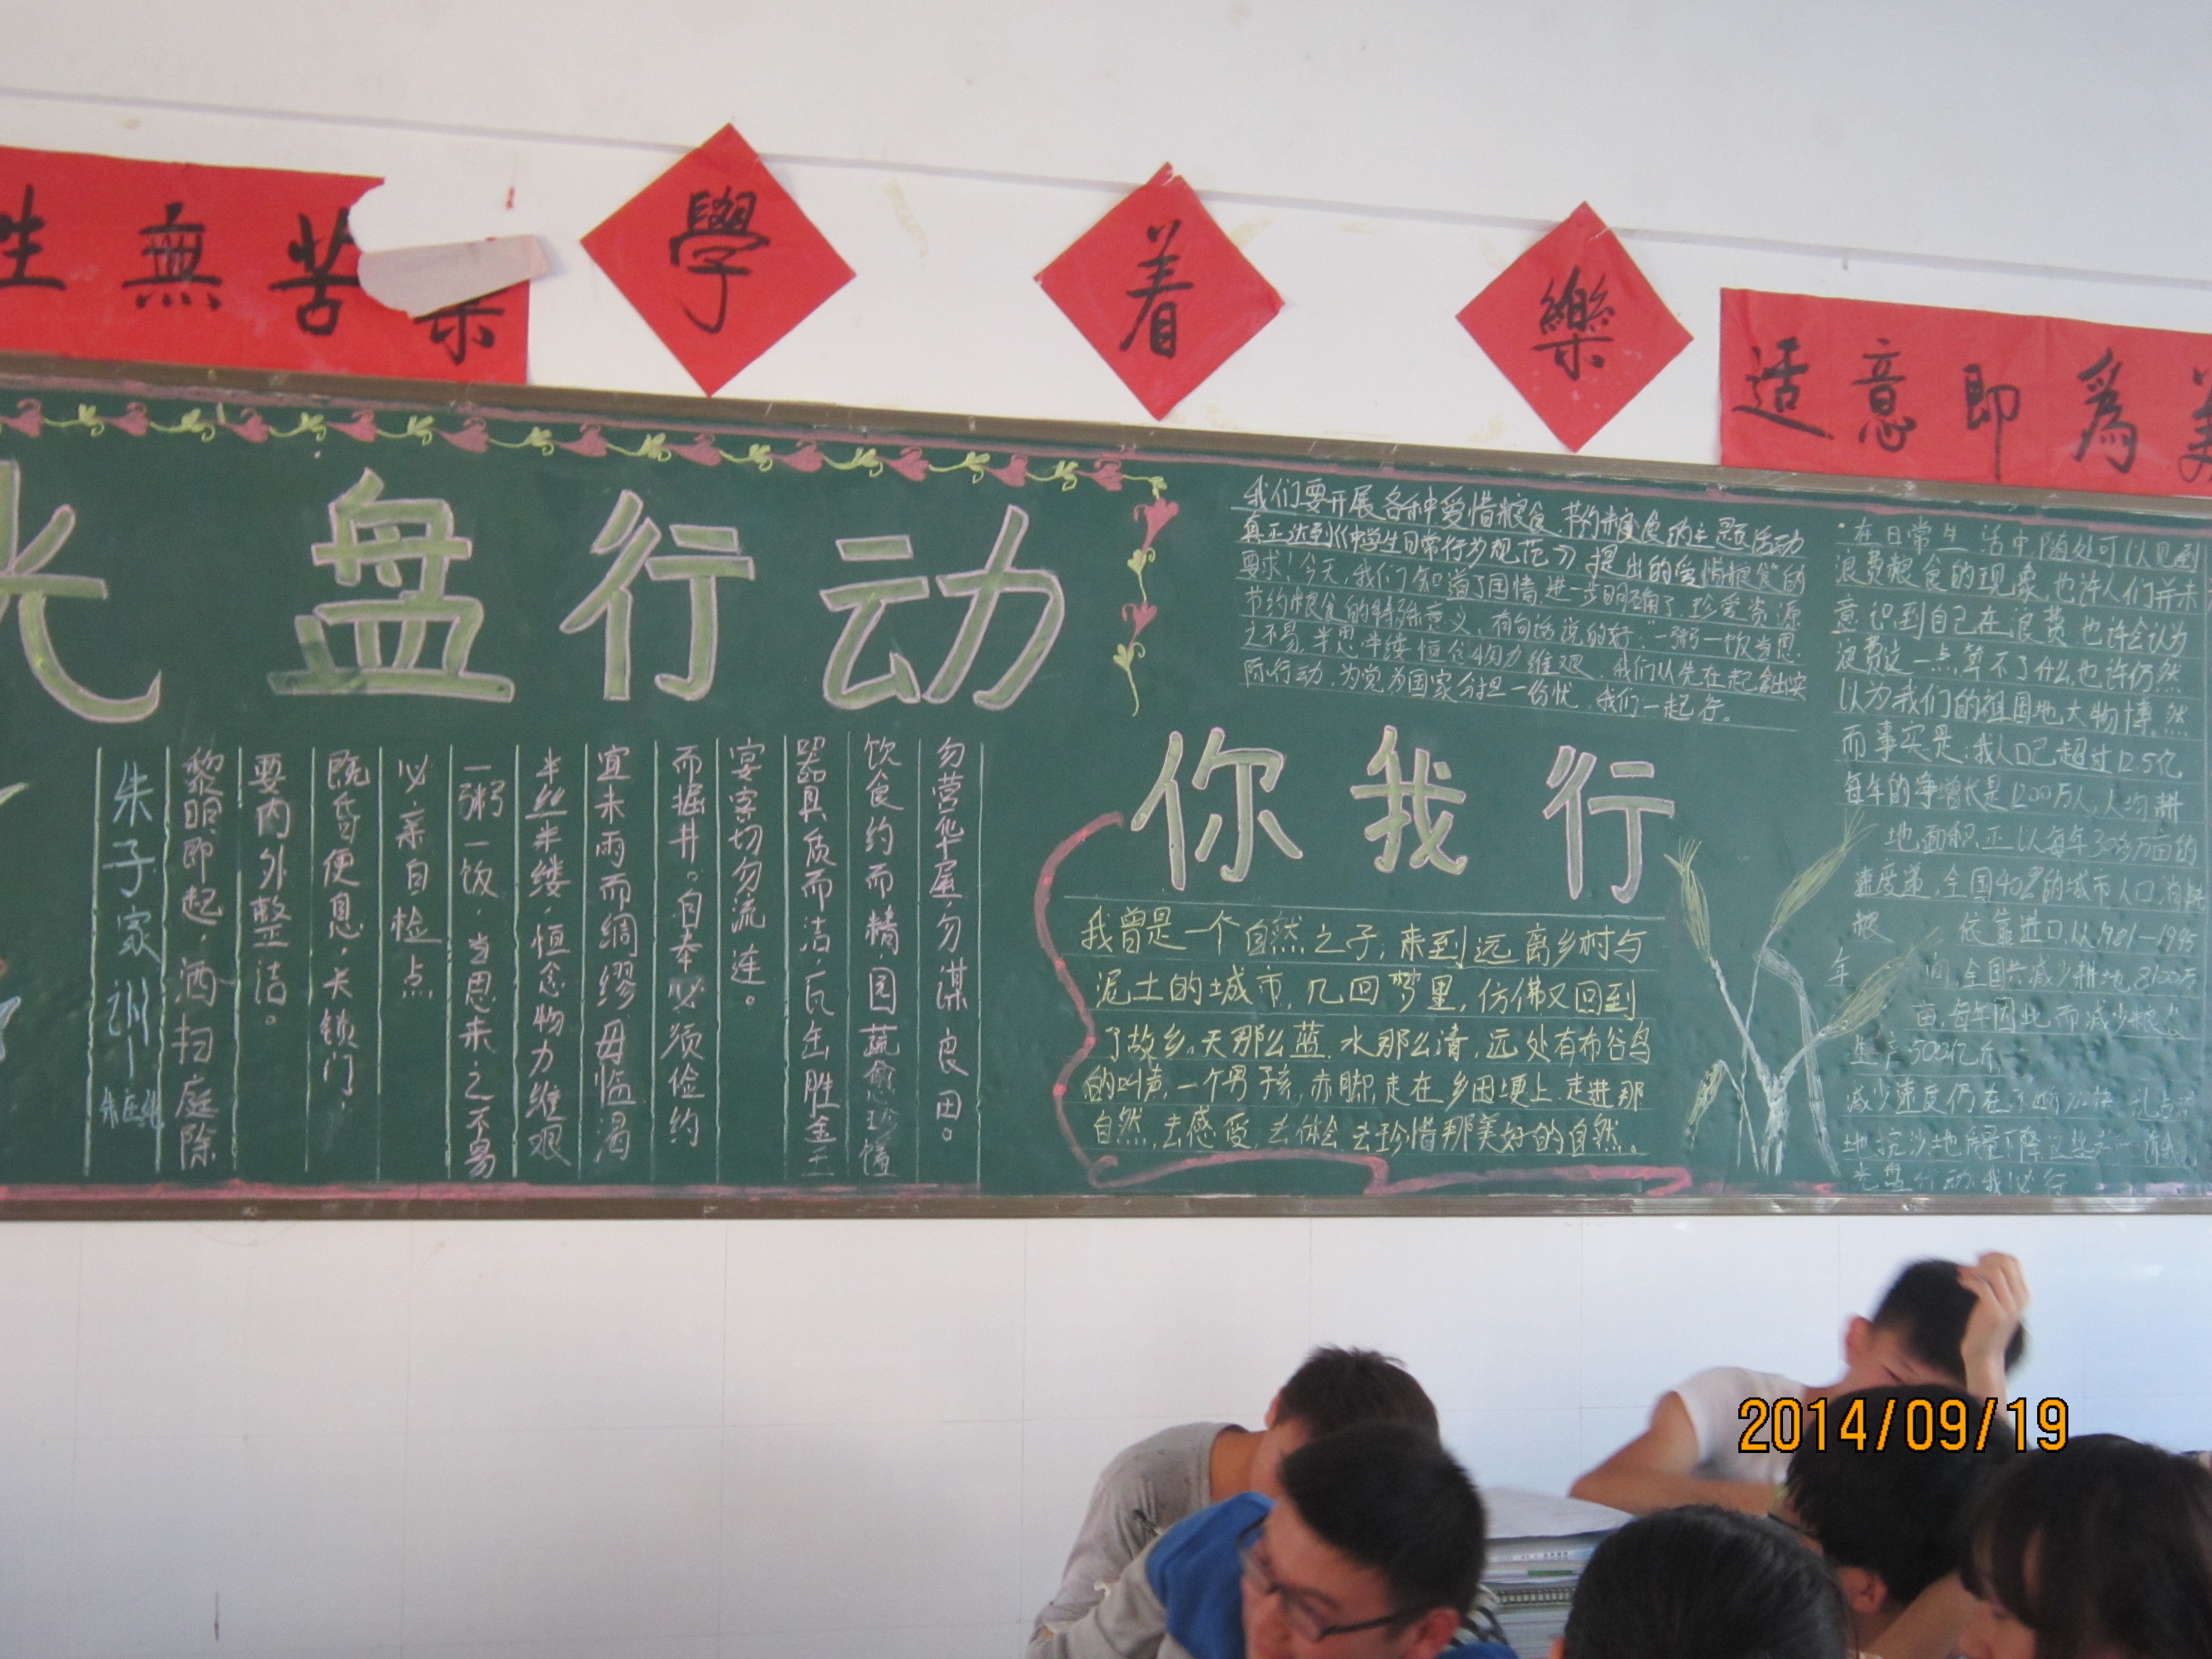 生無苦
學
着
樂
适意即爲美
光盘行动
朱子家训
黎明即起,洒扫庭除
要内外整洁。
既昏便息,关锁门,
必亲自检点
一粥一饭,当思来之不易
半丝半缕,恒念物力维艰
宜未雨而绸缪,毋临渴
而掘井。自奉必须俭约
宴客切勿流连。
器具质而洁,瓦缶胜金玉
饮食约而精,园蔬愈珍馐
勿营华屋,勿谋良田。
我们要开展各种爱惜粮食,节约粮食的主题活动
真正达到《中学生日常行为规范》提出的爱惜粮食的
要求!今天,我们知道了国情,进一步明确了珍爱资源
节约粮食的特殊意义,有句话说的好:“一粥一饭当思
之不易,半思半缕恒念物力维艰,我们从先在起
际行动,为党为国家分担一份忧,我们一起行。
你我行
我曾是一个自然之子,来到远离乡村与
泥土的城市,几回梦里,仿佛又回到
了故乡。天那么蓝,水那么清,远处有布谷鸟
的叫声,一个男孩,赤脚,走在乡田埂上,走进那
自然,去感受,去体会,去珍惜那美好的自然。
在日常生活中,随处可以见到
浪费粮食的现象,也许人们并未
意识到自己在浪费,也许会认为
浪费这一点算不了什么,也许仍然
以为我们的祖国地大物博。然
而事实是:我人口已超过12.5亿
每年的净增长是1200万人,人均耕
地面积正以每年
速度递,全国40%的城市人口消耗
粮 依靠进口,从1981—1995
年 间,全国共减少耕地8100万
亩,每年因此而减少粮食
生产500亿斤
减少速度仍在
光盘行动,我必行
2014/09/19